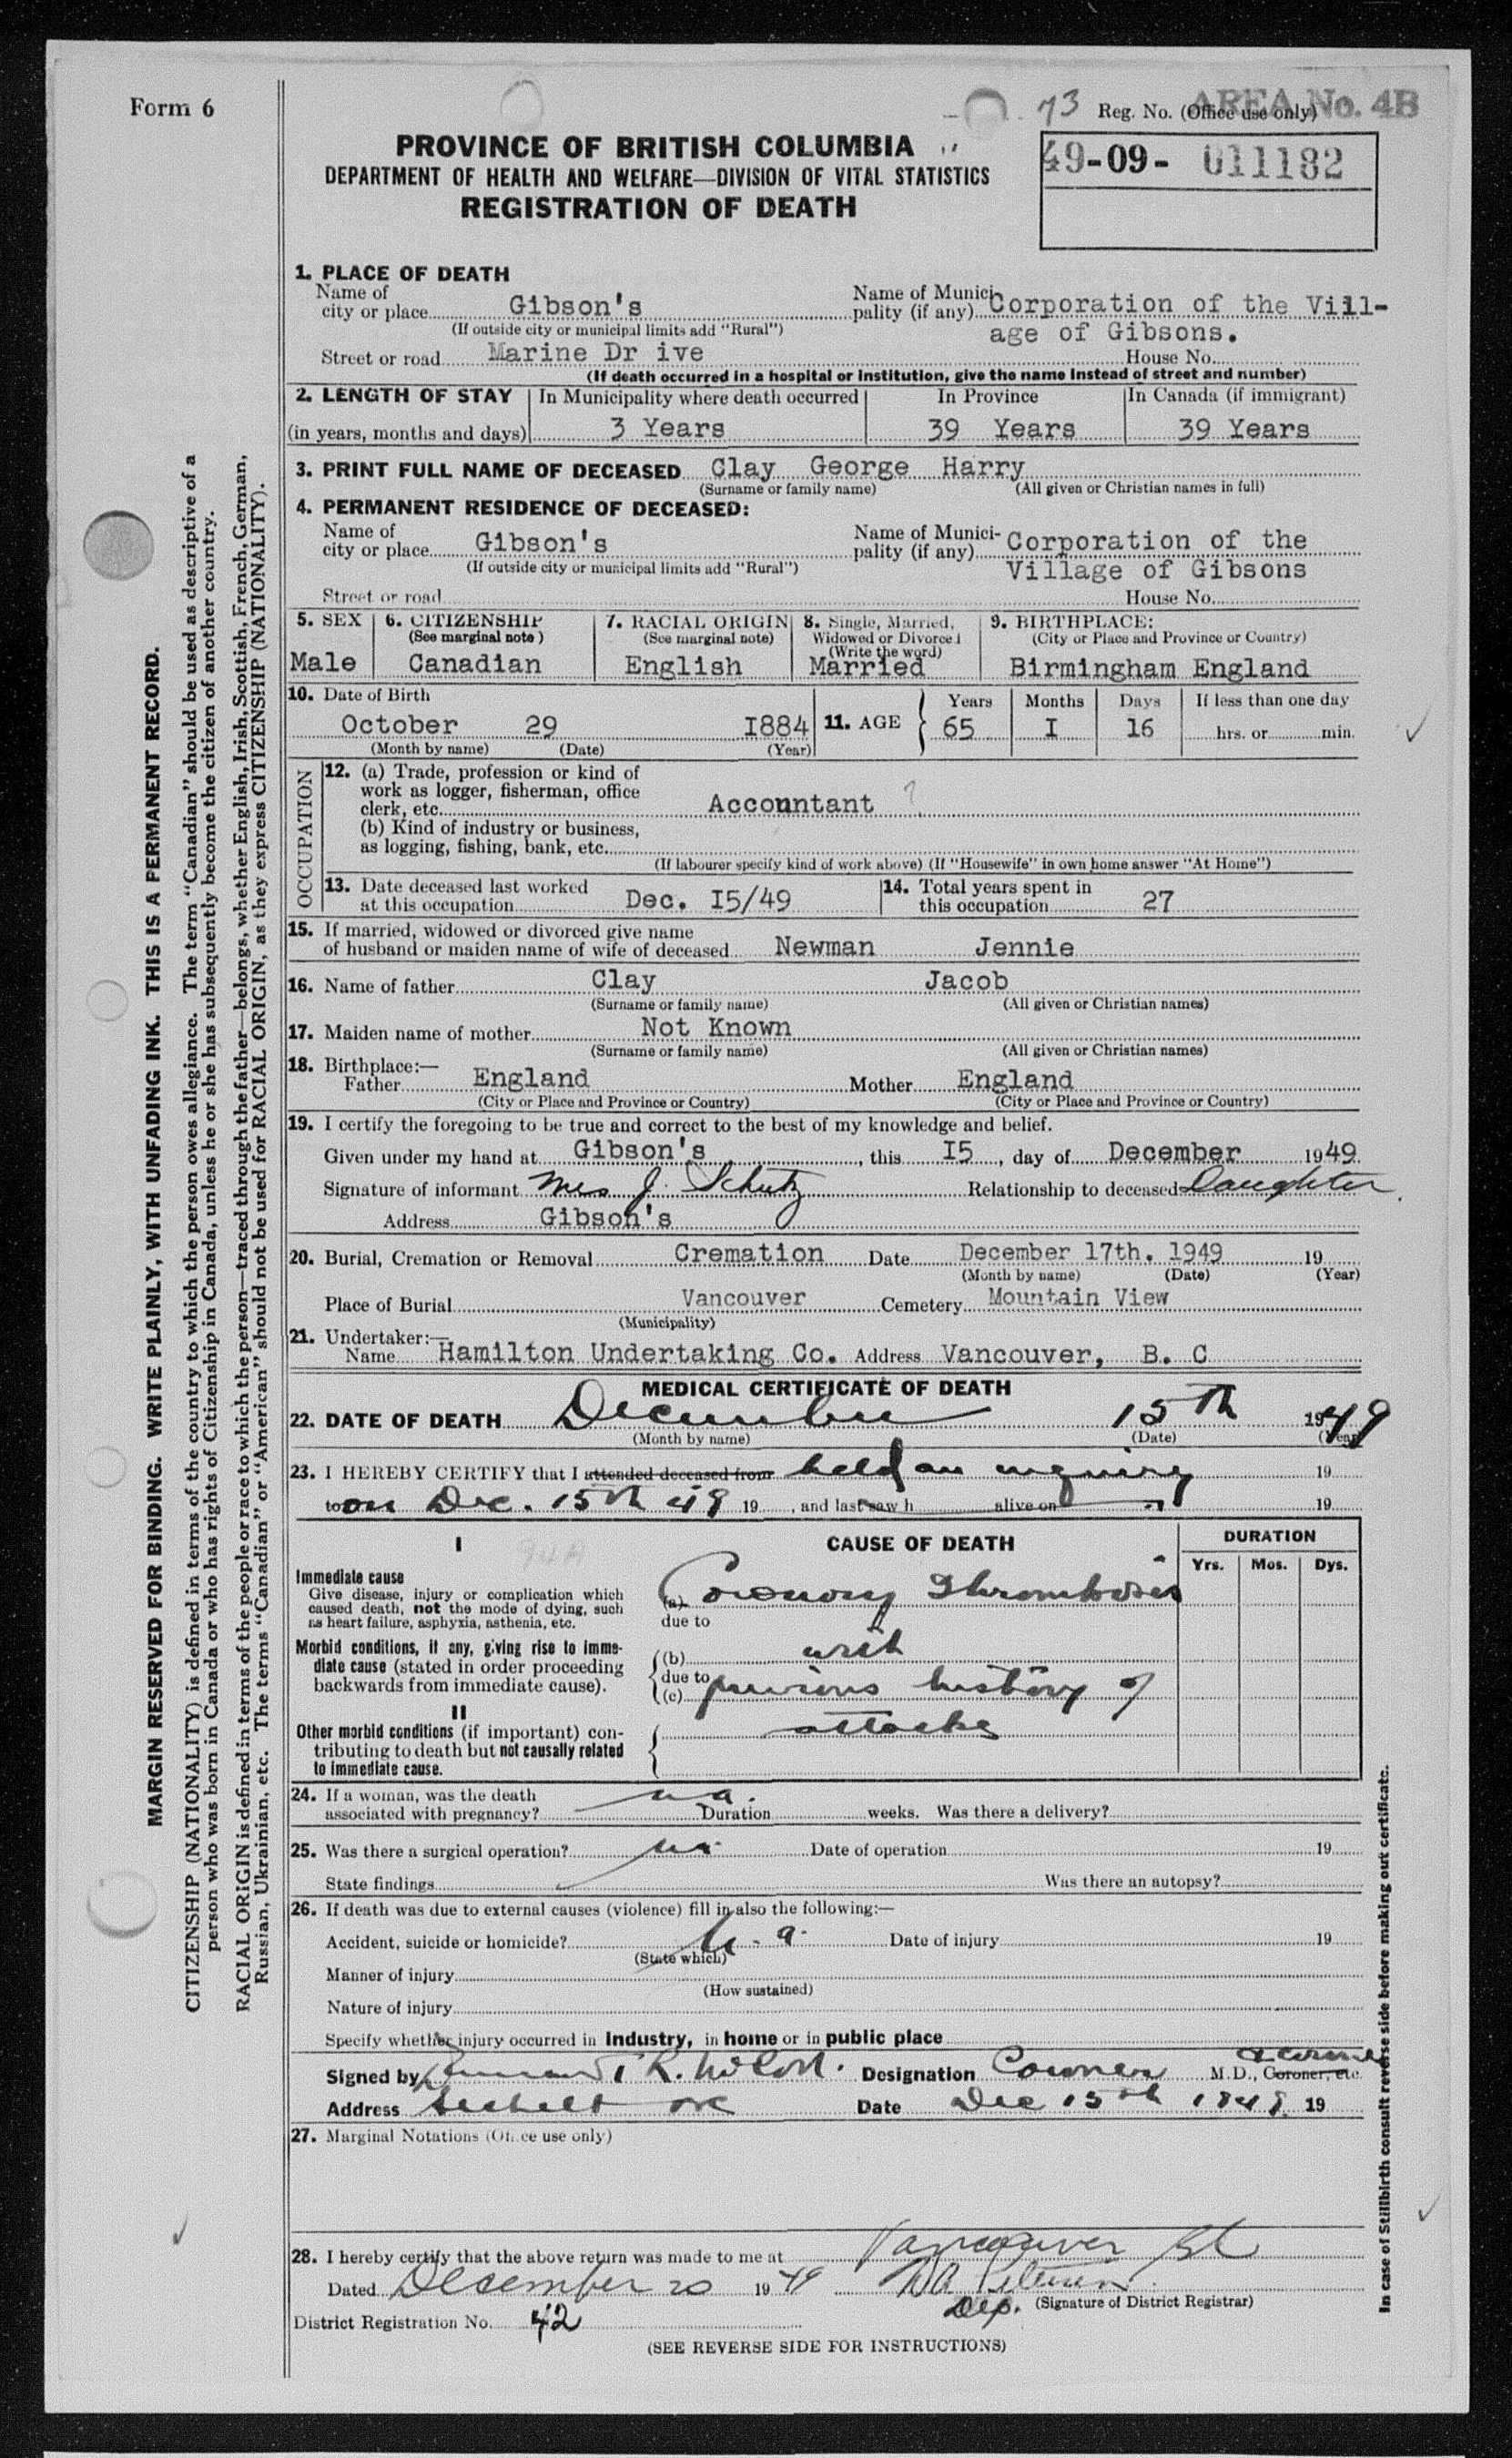 Form 6
73 Reg. No. (Office use only)
AREA No. 4B
PROVINCE OF BRITISH COLUMBIA
DEPARTMENT OF HEALTH AND WELFARE—DIVISION OF VITAL STATISTICS
REGISTRATION OF DEATH
49-09- 011182
1. PLACE OF DEATH
Name of city or place Gibson's Name of Municipality (if any) Corporation of the Vill-
(If outside city or municipal limits add "Rural") age of Gibsons.
Street or road Marine Dr ive House No.
(If death occurred in a hospital or institution, give the name instead of street and number)
2. LENGTH OF STAY In Municipality where death occurred In Province In Canada (if immigrant)
(in years, months and days) 3 Years 39 Years 39 Years
3. PRINT FULL NAME OF DECEASED Clay George Harry
(Surname or family name) (All given or Christian names in full)
4. PERMANENT RESIDENCE OF DECEASED:
Name of city or place Gibson's Name of Municipality (if any) Corporation of the
(If outside city or municipal limits add "Rural") Village of Gibsons
Street or road House No.
5. SEX 6. CITIZENSHIP 7. RACIAL ORIGIN 8. Single, Married, 9. BIRTHPLACE:
(See marginal note) (See marginal note) Widowed or Divorced (City or Place and Province or Country)
(Write the word)
Male Canadian English Married Birmingham England
10. Date of Birth Years Months Days If less than one day
October 29 I884 11. AGE 65 I 16 hrs. or min.
(Month by name) (Date) (Year)
OCCUPATION
12. (a) Trade, profession or kind of
work as logger, fisherman, office
clerk, etc. Accountant ?
(b) Kind of industry or business,
as logging, fishing, bank, etc.
(If labourer specify kind of work above) (If "Housewife" in own home answer "At Home")
13. Date deceased last worked 14. Total years spent in
at this occupation Dec. I5/49 this occupation 27
15. If married, widowed or divorced give name
of husband or maiden name of wife of deceased Newman Jennie
16. Name of father Clay Jacob
(Surname or family name) (All given or Christian names)
17. Maiden name of mother Not Known
(Surname or family name) (All given or Christian names)
18. Birthplace:—
Father England Mother England
(City or Place and Province or Country) (City or Place and Province or Country)
19. I certify the foregoing to be true and correct to the best of my knowledge and belief.
Given under my hand at Gibson's, this I5, day of December 1949
Signature of informant Mrs J. Schutz Relationship to deceased Daughter.
Address Gibson's
20. Burial, Cremation or Removal Cremation Date December 17th. 1949 19
(Month by name) (Date) (Year)
Place of Burial Vancouver Cemetery Mountain View
(Municipality)
21. Undertaker:—
Name Hamilton Undertaking Co. Address Vancouver, B. C
MEDICAL CERTIFICATE OF DEATH
22. DATE OF DEATH December 15th 1949
(Month by name) (Date) (Year)
23. I HEREBY CERTIFY that I attended deceased from held an inquiry 19
to on Dec. 15th 49 19 , and last saw h alive on 19
I CAUSE OF DEATH DURATION
94A Yrs. Mos. Dys.
Immediate cause
Give disease, injury or complication which
caused death, not the mode of dying, such
as heart failure, asphyxia, asthenia, etc.
(a) Coronary Thrombosis
due to
Morbid conditions, if any, giving rise to imme-
diate cause (stated in order proceeding
backwards from immediate cause).
(b) with
due to
(c) previous history of
II
Other morbid conditions (if important) con-
tributing to death but not causally related
to immediate cause.
attacks
24. If a woman, was the death n a.
associated with pregnancy? Duration weeks. Was there a delivery?
25. Was there a surgical operation? Date of operation 19
State findings Was there an autopsy?
26. If death was due to external causes (violence) fill in also the following:—
Accident, suicide or homicide? n. a. Date of injury 19
(State which)
Manner of injury
(How sustained)
Nature of injury
Specify whether injury occurred in Industry, in home or in public place
Signed by Designation Coroner M.D., Coroner, etc.
Address Sechelt BC Date Dec 15th 1949. 19
27. Marginal Notations (Office use only)
28. I hereby certify that the above return was made to me at Vancouver BC
Dated December 20 1949
Dep. (Signature of District Registrar)
District Registration No. 42
(SEE REVERSE SIDE FOR INSTRUCTIONS)
MARGIN RESERVED FOR BINDING. WRITE PLAINLY, WITH UNFADING INK. THIS IS A PERMANENT RECORD.
CITIZENSHIP (NATIONALITY) is defined in terms of the country to which the person owes allegiance. The term "Canadian" should be used as descriptive of a
person who was born in Canada or who has rights of Citizenship in Canada, unless he or she has subsequently become the citizen of another country.
RACIAL ORIGIN is defined in terms of the people or race to which the person—traced through the father—belongs, whether English, Irish, Scottish, French, German,
Russian, Ukrainian, etc. The terms "Canadian" or "American" should not be used for RACIAL ORIGIN, as they express CITIZENSHIP (NATIONALITY).
In case of Stillbirth consult reverse side before making out certificate.